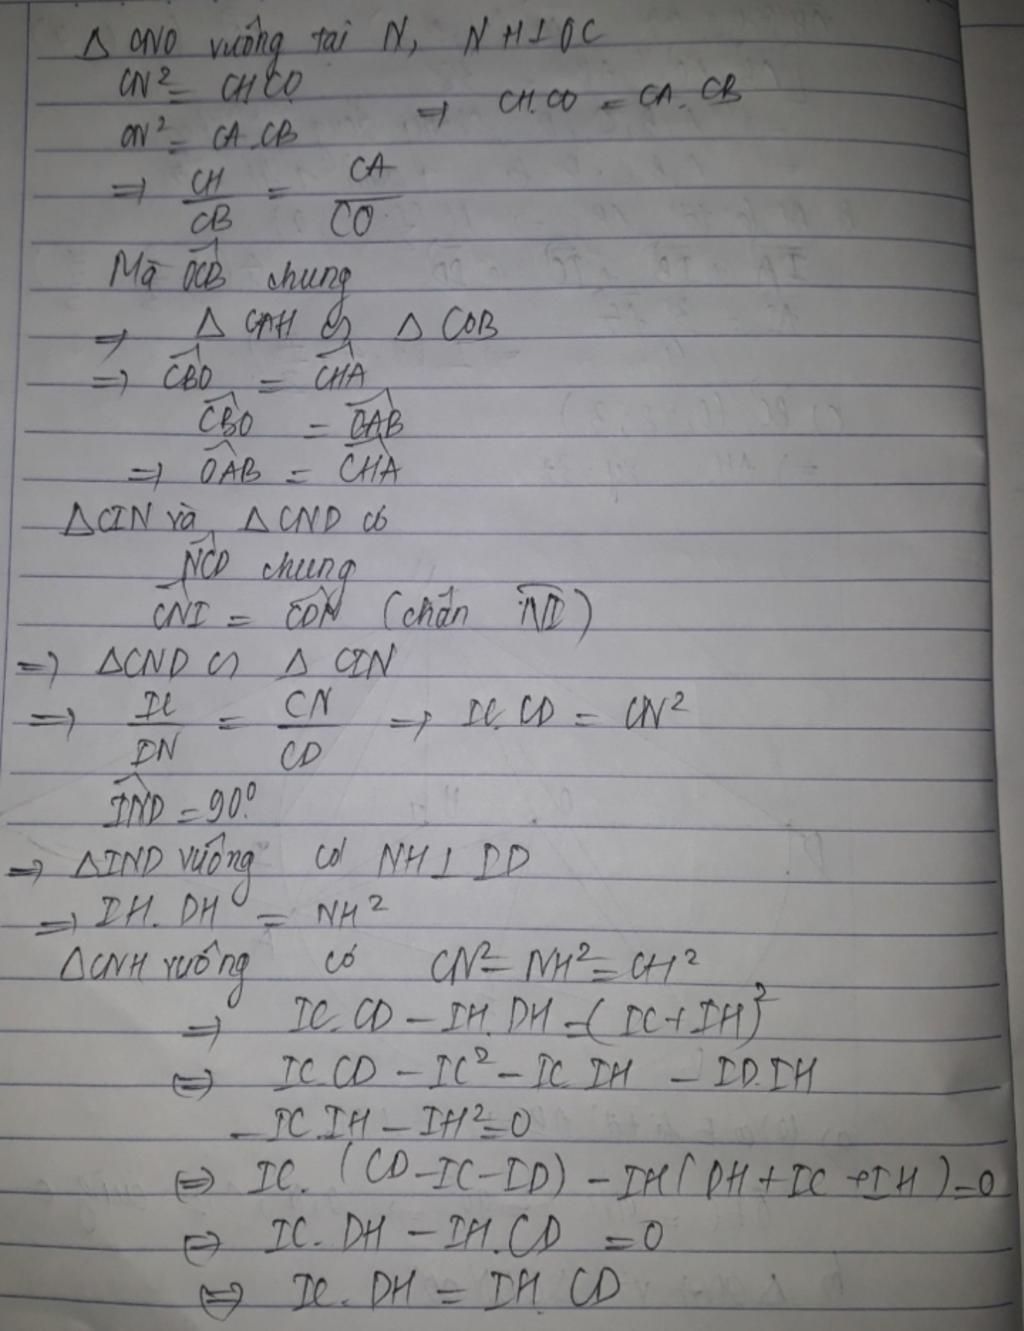 Δ ONO vuông tại N, NH⊥OC
CN² = CH.CO
ON² = CA.CB ⇒ CH.CO = CA.CB
⇒ CH/CB = CA/CO
Mà OCB chung
⇒ Δ CAH ∽ Δ COB
⇒ CBO = CHA
CBO = OAB
⇒ OAB = CHA
ΔCIN và ΔCND có
NCD chung
CNI = CDN (chắn NI)
⇒ ΔCND ∽ Δ CIN
⇒ IC/DN = CN/CD ⇒ IC.CD = CN²
IND = 90°
⇒ ΔIND vuông có NH⊥ID
⇒ IH.DH = NH²
ΔCNH vuông có CN² = NH² = CH²
⇒ IC.CD - IH.DH = (IC+IH)²
⇔ IC.CD - IC² - IC.IH - ID.IH
- IC.IH - IH² = 0
⇔ IC.(CD-IC-ID) - IH(DH+IC+IH) = 0
⇔ IC.DH - IH.CD = 0
⇔ IC.DH = IH.CD